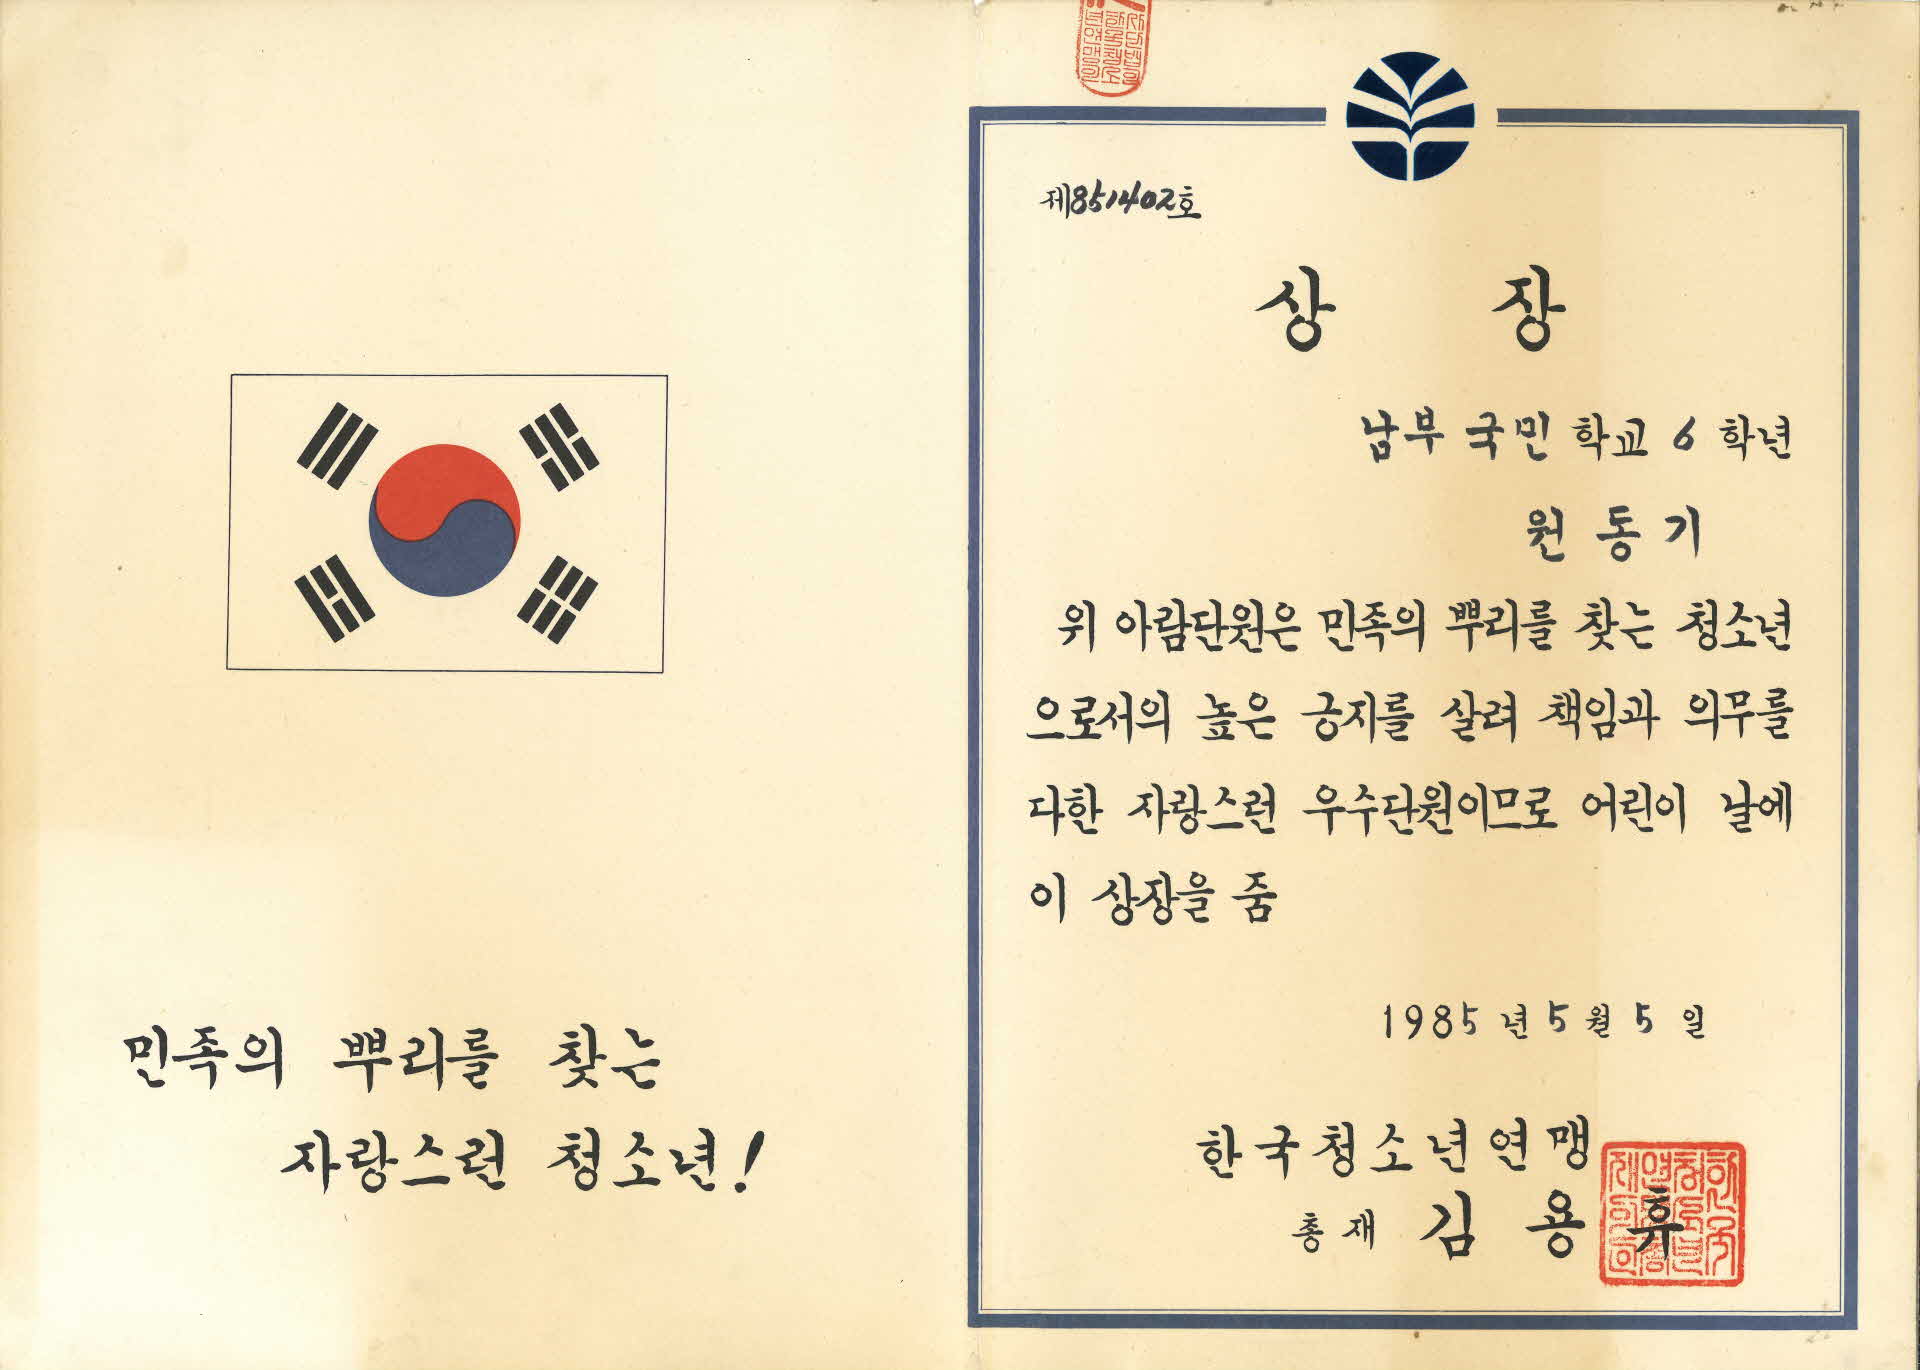 민족의 뿌리를 찾는
자랑스런 청소년!
제851402호
상 장
남부 국민 학교 6 학년
원 동 기
위 아람단원은 민족의 뿌리를 찾는 청소년
으로서의 높은 긍지를 살려 책임과 의무를
다한 자랑스런 우수단원이므로 어린이 날에
이 상장을 줌
1985년 5월 5일
한국청소년연맹
총재 김 용 휴